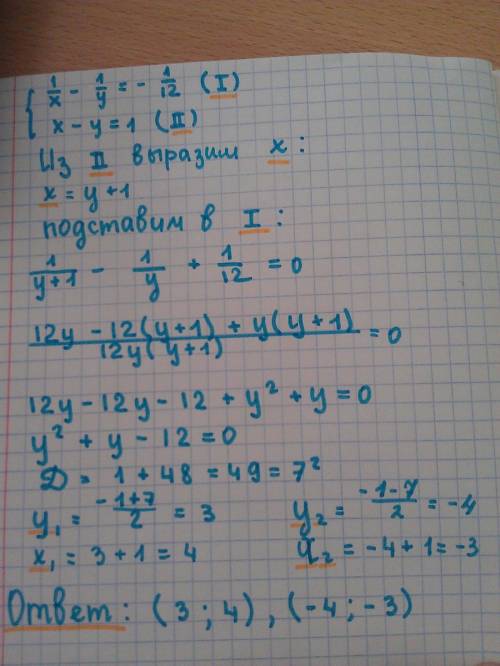 { 1/x - 1/y = - 1/12 (I)
x - y = 1 (II)
Из II выразим x :
x = y + 1
подставим в I :
1/(y+1) - 1/y + 1/12 = 0
(12y - 12(y+1) + y(y+1))/(12y(y+1)) = 0
12y - 12y - 12 + y² + y = 0
y² + y - 12 = 0
D = 1 + 48 = 49 = 7²
y₁ = (-1+7)/2 = 3 y₂ = (-1-7)/2 = -4
x₁ = 3 + 1 = 4 x₂ = -4 + 1 = -3
Ответ : (3 ; 4) , (-4 ; -3)